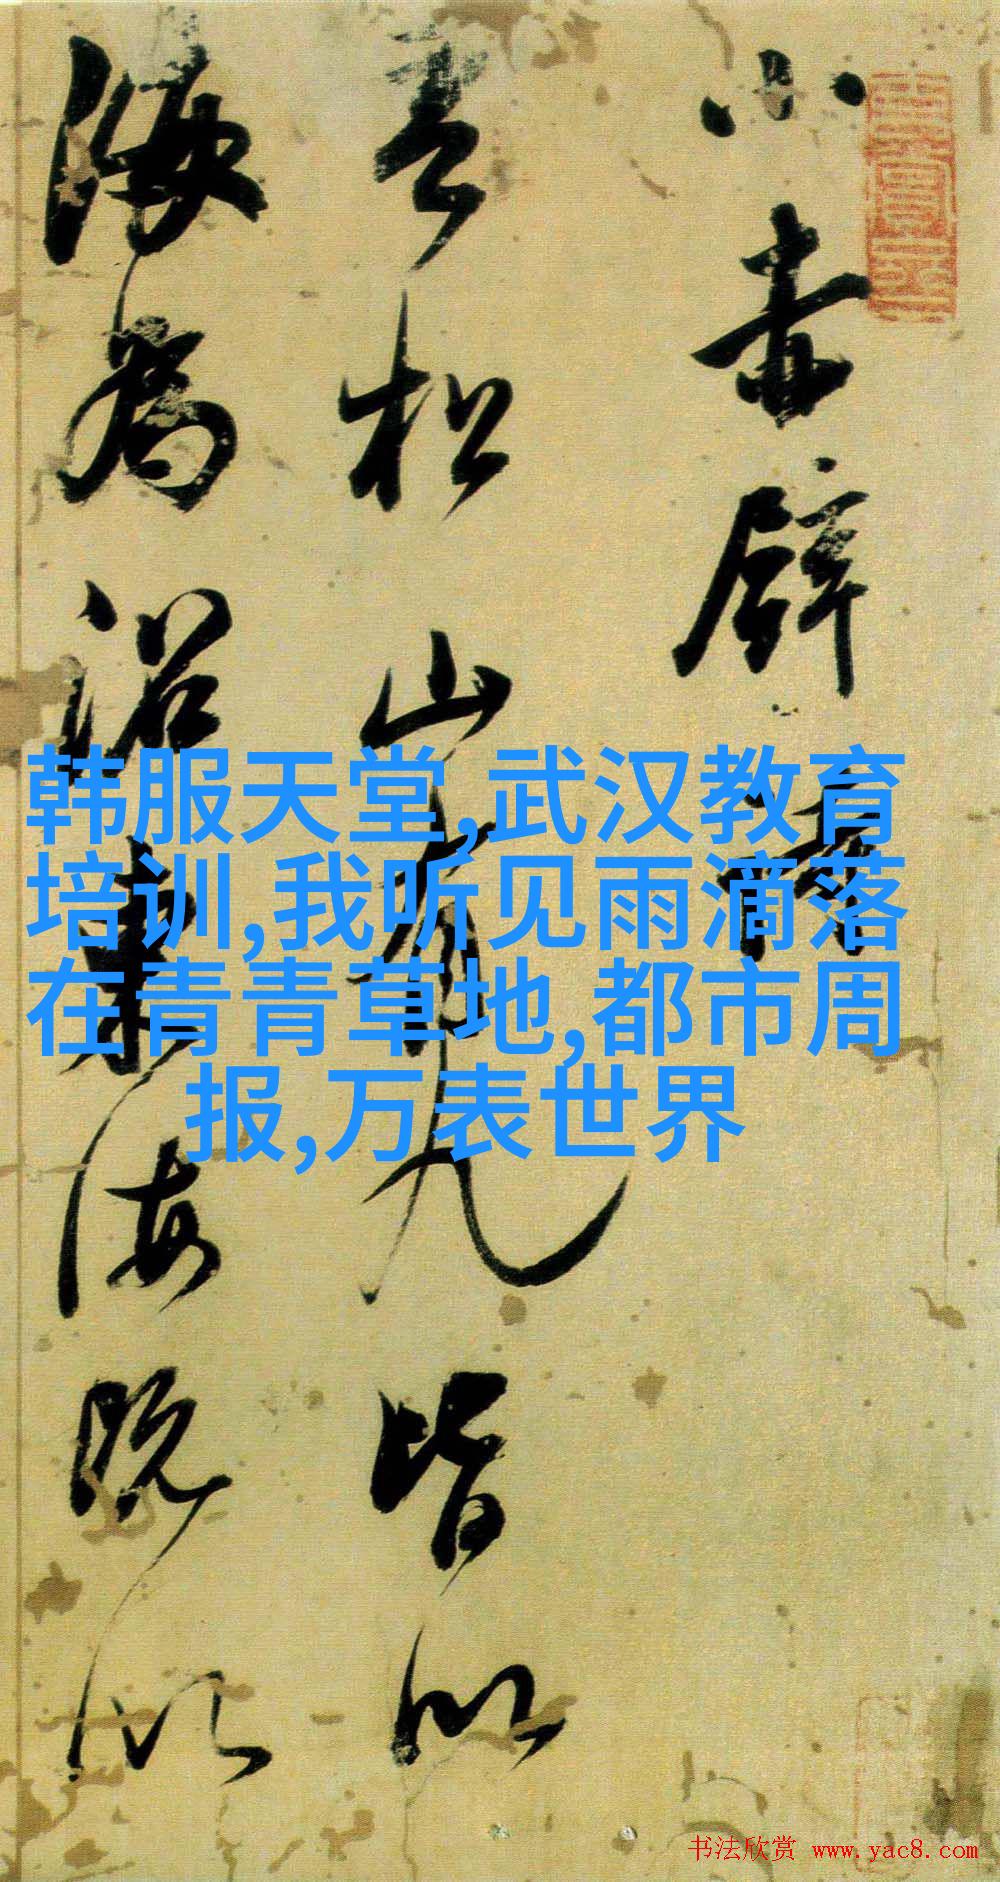 小赤壁
吾松山有九皆以
海為沼東海既以
韩服天堂,武汉教育
培训,我听见雨滴落
在青青草地,都市周
报,万表世界
书法欣赏 www.yac8.com